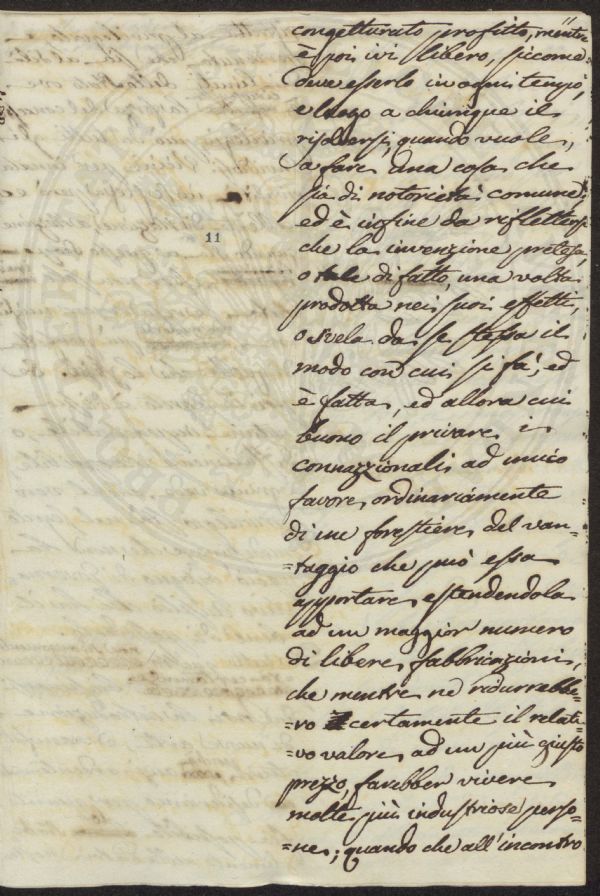 congetturato profitto, mentre
è poi ivi libero, siccome
deve esserlo in ogni tempo,
e luogo a chiunque il
risolversi, quando vuole,
a fare una cosa che
sia di notorietà comune;
ed è infine da riflettersi
che la invenzione pretesa,
o tale di fatto, una volta
prodotta nei suoi effetti,
o svela da se stessa il
modo con cui si fà, ed
è fatta, ed allora cui
buono il privare i
connazzionali ad unico
favore ordinariamente
di un forestiere del van=
=taggio che può essa
apportare estendendola
ad un maggior numero
di libere fabbricazioni,
che mentre ne ridurrebbe=
=ro certamente il relati=
=vo valore ad un più giusto
prezzo, farebber vivere
molte più industriose perso=
=ne; quando che all'incontro
11